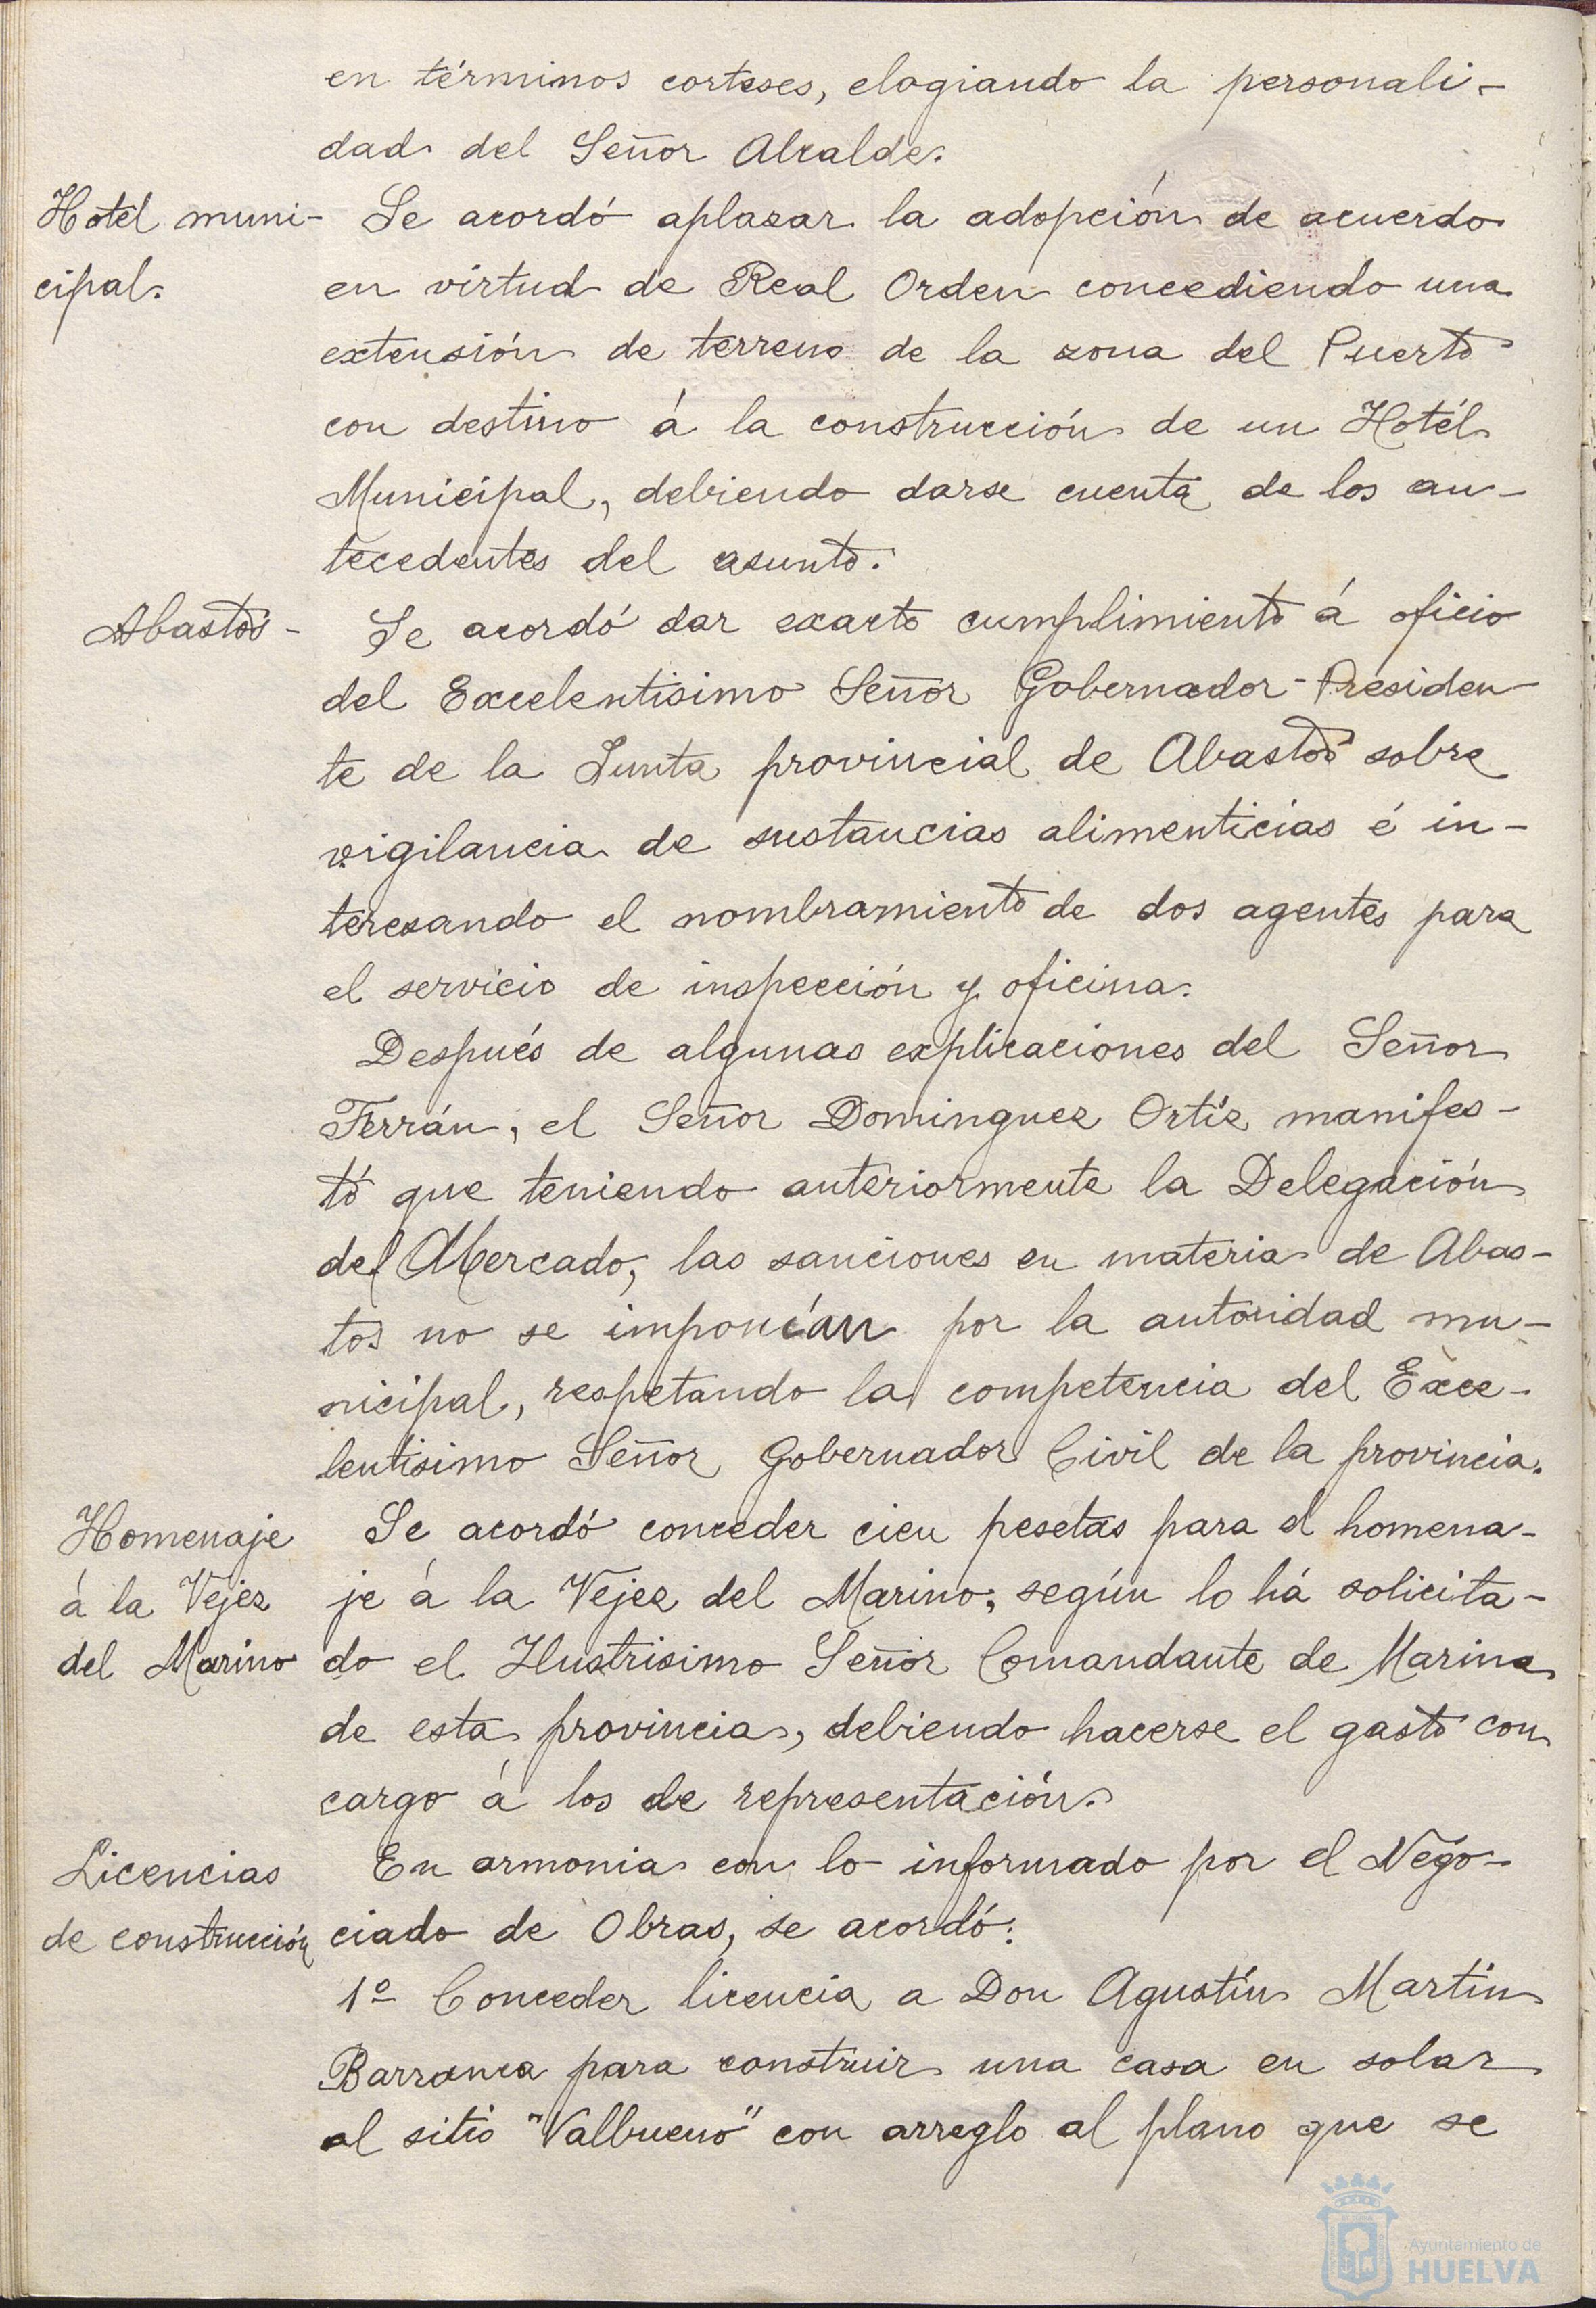 en términos corteses, elogiando la personali-
dad del Señor Alcalde.
Hotel muni-
cipal.
Se acordó aplazar la adopción de acuerdo
en virtud de Real Orden concediendo una
extensión de terreno de la zona del Puerto
con destino á la construcción de un Hotél
Municipal, debiendo darse cuenta de los an-
tecedentes del asunto.
Abastos-
Se acordó dar exacto cumplimiento á oficio
del Excelentisimo Señor Gobernador-Presiden
te de la Junta provincial de Abastos sobre
vigilancia de sustancias alimenticias é in-
teresando el nombramiento de dos agentes para
el servicio de inspección y oficina.
Después de algunas explicaciones del Señor
Ferrán, el Señor Dominguez Ortíz manifes-
tó que teniendo anteriormente la Delegación
del Mercado, las sanciones en materia de Abas-
tos no se imponían por la autoridad mu-
nicipal, respetando la competencia del Exce-
lentisimo Señor Gobernador Civil de la provincia.
Homenaje
á la Vejez
del Marino
Se acordó conceder cien pesetas para el homena-
je á la Vejez del Marino, según lo há solicita-
do el Ilustrisimo Señor Comandante de Marina
de esta provincia, debiendo hacerse el gasto con
cargo á los de representación.
Licencias
de construcción
En armonia con lo informado por el Nego-
ciado de Obras, se acordó:
1º Conceder licencia a Don Agustín Martin
Barranca para construir una casa en solar
al sitio "Valbueno" con arreglo al plano que se
Ayuntamiento de
HUELVA